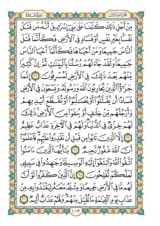 مِنْ أَجْلِ ذَٰلِكَ كَتَبْنَا عَلَىٰ بَنِي إِسْرَٰٓءِيلَ أَنَّهُۥ مَن قَتَلَ
نَفْسًا بِغَيْرِ نَفْسٍ أَوْ فَسَادٍ فِي الْأَرْضِ فَكَأَنَّمَا قَتَلَ
النَّاسَ جَمِيعًا وَمَنْ أَحْيَاهَا فَكَأَنَّمَا أَحْيَا النَّاسَ
جَمِيعًا وَلَقَدْ جَاءَتْهُمْ رُسُلُنَا بِالْبَيِّنَٰتِ ثُمَّ إِنَّ كَثِيرًا
مِّنْهُم بَعْدَ ذَٰلِكَ فِي الْأَرْضِ لَمُسْرِفُونَ ٣٢
إِنَّمَا جَزَٰٓؤُا الَّذِينَ يُحَارِبُونَ اللَّهَ وَرَسُولَهُۥ وَيَسْعَوْنَ فِي الْأَرْضِ
فَسَادًا أَن يُقَتَّلُوا أَوْ يُصَلَّبُوا أَوْ تُقَطَّعَ أَيْدِيهِمْ
وَأَرْجُلُهُم مِّنْ خِلَٰفٍ أَوْ يُنفَوْا مِنَ الْأَرْضِ ذَٰلِكَ
لَهُمْ خِزْيٌ فِي الدُّنْيَا وَلَهُمْ فِي الْآخِرَةِ عَذَابٌ عَظِيمٌ ٣٣
إِلَّا الَّذِينَ تَابُوا مِن قَبْلِ أَن تَقْدِرُوا عَلَيْهِمْ فَاعْلَمُوا
أَنَّ اللَّهَ غَفُورٌ رَّحِيمٌ ٣٤ يَٰٓأَيُّهَا الَّذِينَ ءَامَنُوا
اتَّقُوا اللَّهَ وَابْتَغُوا إِلَيْهِ الْوَسِيلَةَ وَجَٰهِدُوا فِي سَبِيلِهِۦ
لَعَلَّكُمْ تُفْلِحُونَ ٣٥ إِنَّ الَّذِينَ كَفَرُوا لَوْ أَنَّ
لَهُم مَّا فِي الْأَرْضِ جَمِيعًا وَمِثْلَهُۥ مَعَهُۥ لِيَفْتَدُوا بِهِۦ مِنْ
عَذَابِ يَوْمِ الْقِيَٰمَةِ مَا تُقُبِّلَ مِنْهُمْ وَلَهُمْ عَذَابٌ أَلِيمٌ ٣٦
١١٣